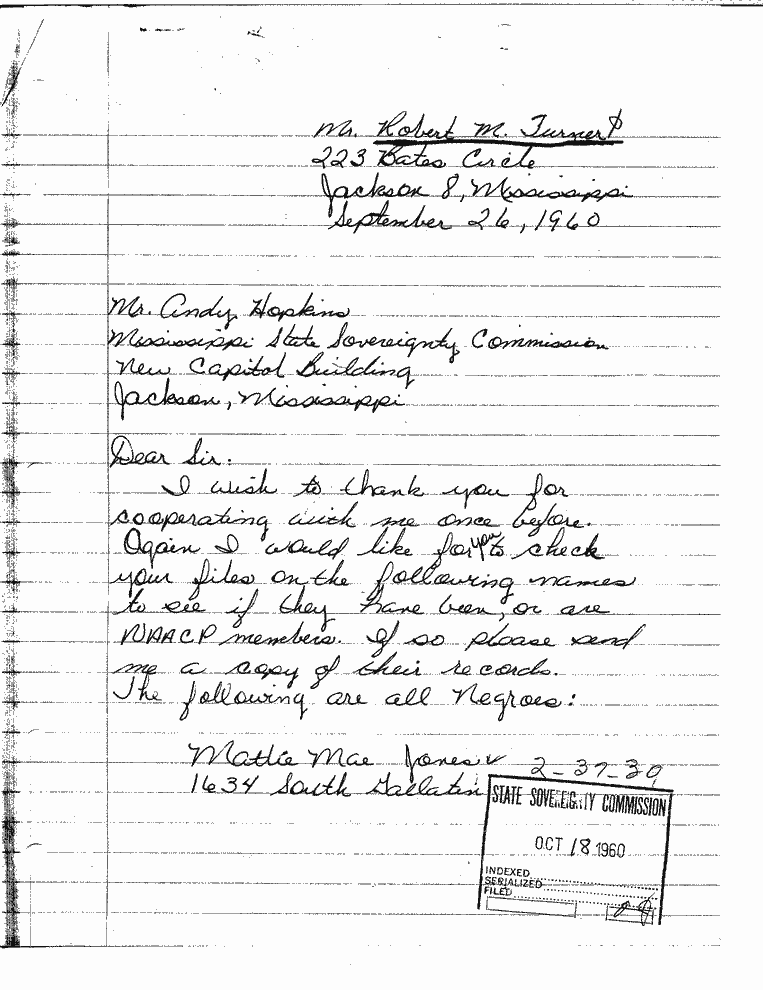 Mr. Robert M. Turner
223 Bates Circle
Jackson 8, Mississippi
September 26, 1960
Mr. Andy Hopkins
Mississippi State Sovereignty Commission
New Capitol Building
Jackson, Mississippi
Dear Sir:
I wish to thank you for
cooperating with me once before.
Again I would like for you to check
your files on the following names
to see if they have been, or are
NAACP members. If so please send
me a copy of their records.
The following are all Negroes:
Mattie Mae Jones ✓ 2-37-30
1634 South Gallatin
STATE SOVEREIGNTY COMMISSION
OCT 18 1960
INDEXED
SERIALIZED
FILED